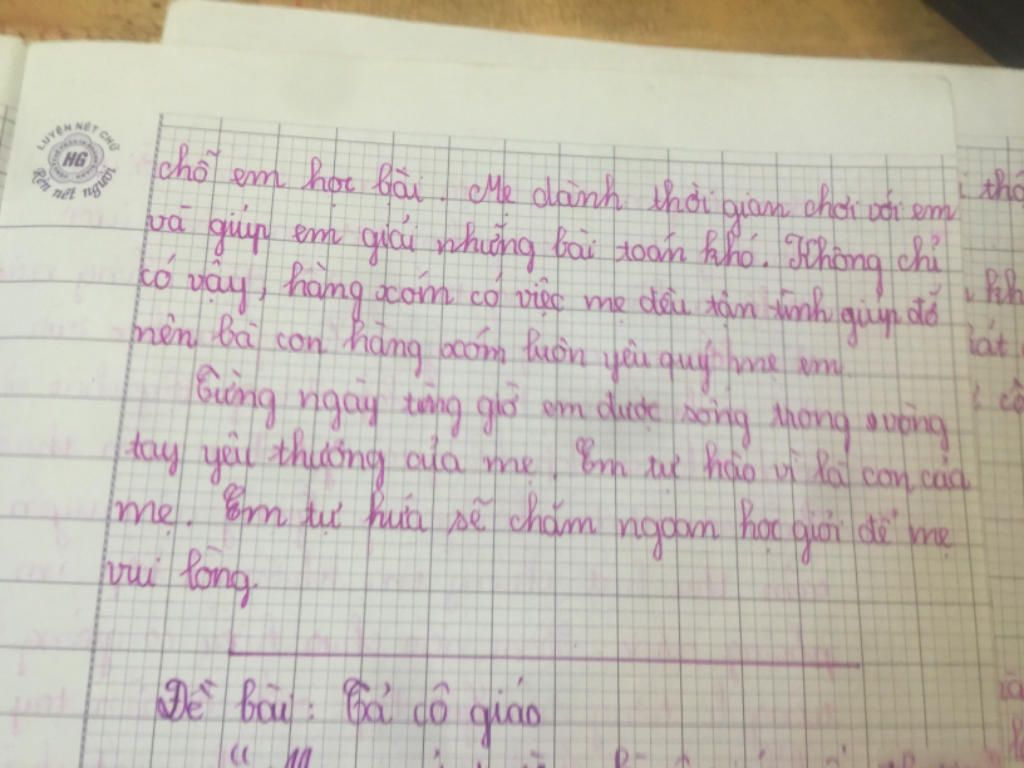 LUYỆN NÉT CHỮ
HG
Rèn nết người
chỗ em học bài. Mẹ dành thời gian chơi với em
và giúp em giải những bài toán khó. Không chỉ
có vậy, hàng xóm có việc mẹ đều tận tình giúp đỡ
nên bà con hàng xóm luôn yêu quý mẹ em.
Từng ngày từng giờ em được sống trong vòng
tay yêu thương của mẹ. Em tự hào vì là con của
mẹ. Em tự hứa sẽ chăm ngoan học giỏi để mẹ
vui lòng.
Đề bài: Tả cô giáo